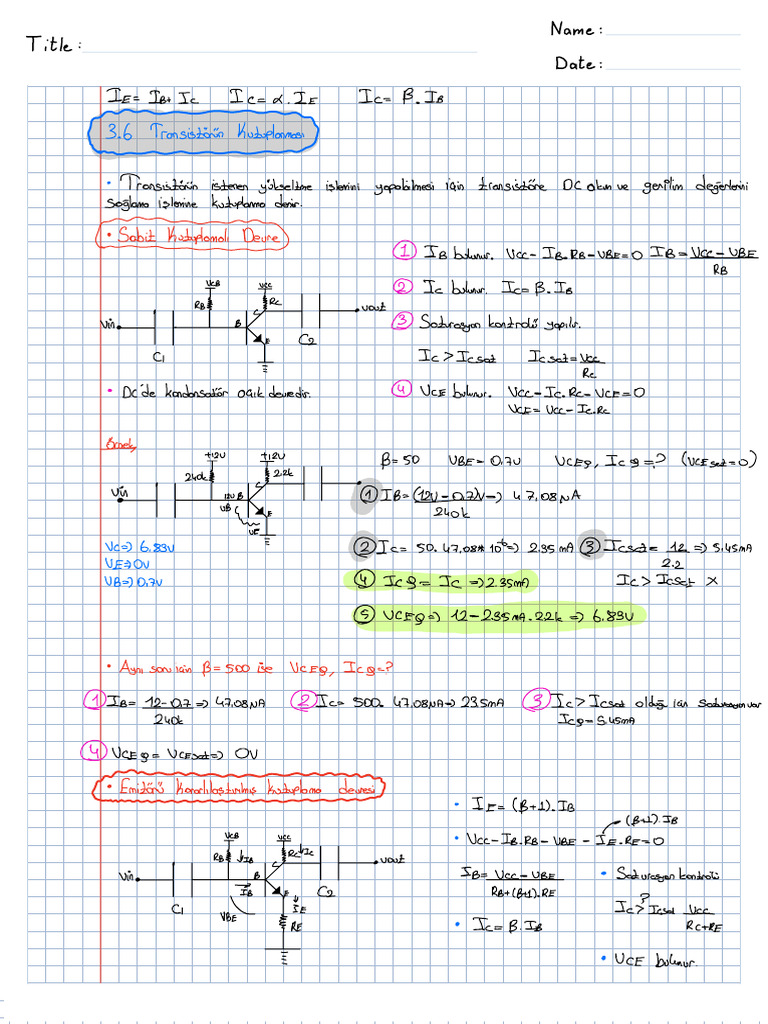 Title:
Name:
Date:
IE = IB + IC   IC = α.IE   IC = β.IB
3.6 Transistörün Kutuplanması
• Transistörün istenen yükseltme işlemini yapabilmesi için transistöre DC akım ve gerilim değerlerini
sağlama işlemine kutuplama denir.
• Sabit Kutuplamalı Devre
① IB bulunur. VCC - IB.RB - VBE = 0   IB = VCC - VBE / RB
② IC bulunur. IC = β.IB
③ Saturasyon kontrolü yapılır.
IC > ICsat   ICsat = VCC / RC
④ VCE bulunur. VCC - IC.RC - VCE = 0
VCE = VCC - IC.RC
VCB VCC
RB RC
C
Vin B Vout
E
C1 C2
• DC'de kondansatör açık devredir.
Örnek
+12V +12V
240k 2.2k
C
Vin 12V B
VB E
VE
β = 50   VBE = 0.7V   VCEQ, ICQ = ? (VCEsat = 0)
① IB = (12V - 0.7)V / 240k => 47,08µA
VC => 6.83V
VE => 0V
VB => 0.7V
② IC = 50. 47,08 * 10^-6 => 2.35 mA   ③ ICsat = 12 / 2.2 => 5.45mA
IC > ICsat x
④ ICQ = IC => 2.35mA
⑤ VCEQ => 12 - 2.35mA.2.2k => 6.83V
• Aynı soru için β = 500 ise VCEQ, ICQ = ?
① IB = 12 - 0.7 / 240k => 47,08µA   ② IC = 500. 47.08µA => 23.5mA   ③ IC > ICsat olduğ için saturasyon var
ICQ = 5.45mA
④ VCEQ = VCEsat => 0V
• Emitörü Kararlılaştırılmış kutuplama devresi
VCB VCC
RB IB RC IC
C
Vin B Vout
IB E
C1 C2
VBE IE
RE
• IE = (β+1).IB
(β+1).IB
• VCC - IB.RB - VBE - IE.RE = 0
IB = VCC - VBE / RB + (β+1).RE
• IC = β.IB
• Saturasyon kontrolü
?
IC > ICsat VCC / RC+RE
• VCE bulunur.